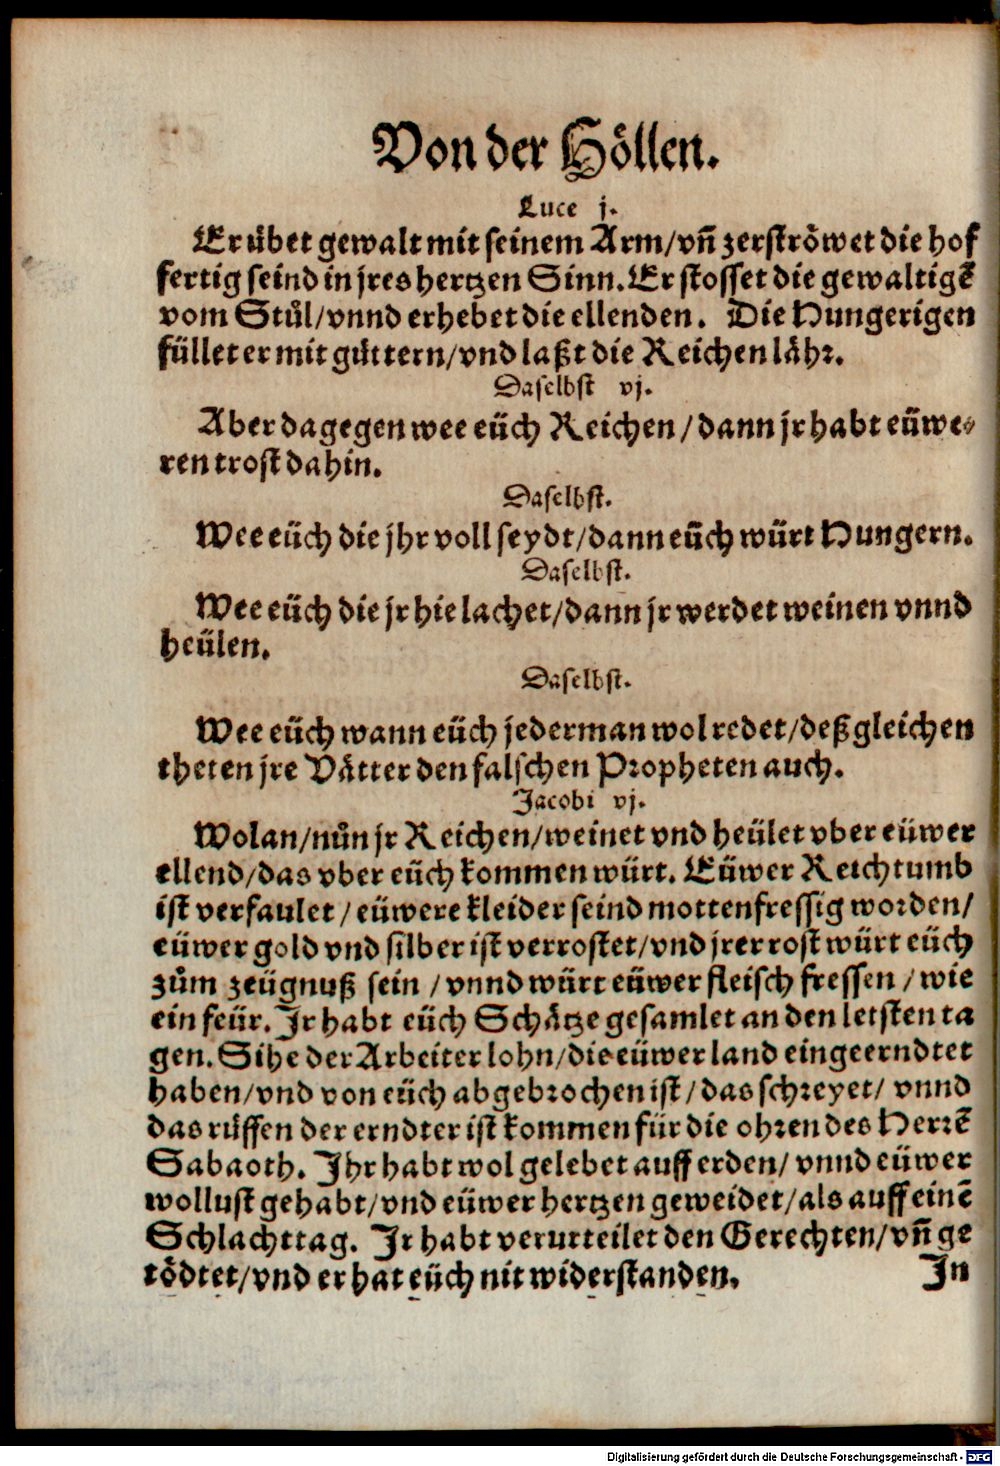 Von der Höllen.
Luce j.
Er übet gewalt mit seinem Arm/vñ zerströwet die hof
fertig seind in jres hertzen Sinn. Er stosset die gewaltigẽ
vom Stůl/vnnd erhebet die ellenden. Die Hungerigen
füllet er mit güttern/vnd laßt die Reichen lähr.
Daselbst vj.
Aber dagegen wee eüch Reichen/dann jr habt eüwe⸗
ren trost dahin.
Daselbst.
Wee eüch die jhr voll seydt/dann eüch würt Hungern.
Daselbst.
Wee eüch die jr hie lachet/dann jr werdet weinen vnnd
heülen.
Daselbst.
Wee eüch wann eüch jederman wol redet/deßgleichen
theten jre Vätter den falschen Propheten auch.
Jacobi vj.
Wolan/nůn jr Reichen/weinet vnd heület vber eüwer
ellend/das vber eüch kommen würt. Eüwer Reichtumb
ist verfaulet/eüwere kleider seind mottenfressig worden/
eüwer gold vnd silber ist verrostet/vnd jrer rost würt eüch
zům zeügnuß sein/vnnd würt eüwer fleisch fressen/wie
ein feür. Jr habt eüch Schätze gesamlet an den letsten ta
gen. Sihe der Arbeiter lohn/die eüwer land eingeerndtet
haben/vnd von eüch abgebrochen ist/das schreyet/vnnd
das rüffen der erndter ist kommen für die ohren des Herrẽ
Sabaoth. Jhr habt wol gelebet auff erden/vnnd eüwer
wollust gehabt/vnd eüwer hertzen geweidet/als auff einẽ
Schlachttag. Jr habt verurteilet den Gerechten/vñ ge
tödtet/vnd er hat eüch nit widerstanden.
Jn
Digitalisierung gefördert durch die Deutsche Forschungsgemeinschaft - DFG